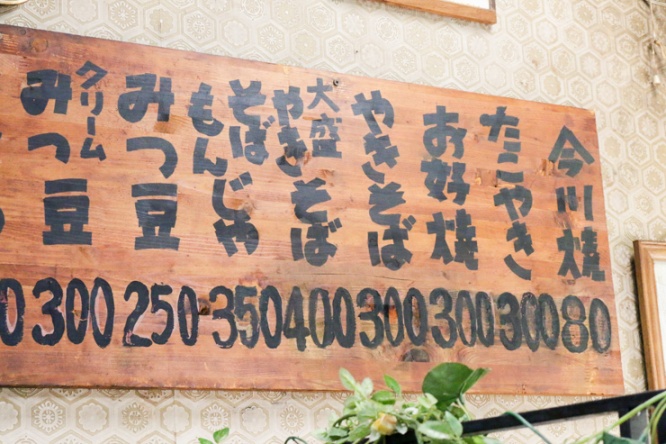 今川焼
80
たこやき
300
お好焼
300
やきそば
300
大盛
やきそば
400
そば
もんじゃ
350
みつ豆
250
クリーム
みつ豆
300